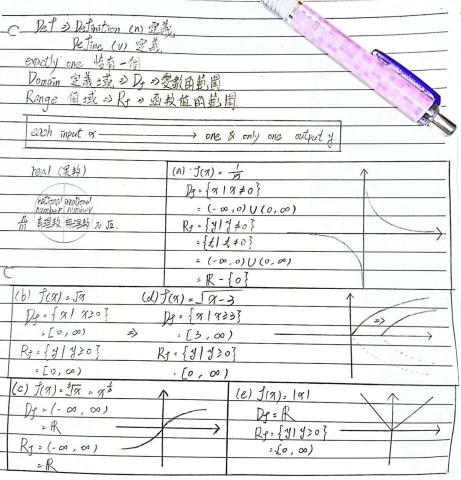 Def ⇒ Definition (n) 定義
Define (v) 定義
exactly one 恰有一個
Domain 定義域 ⇒ Df ⇒ 變數的範圍
Range 值域 ⇒ Rf ⇒ 函數值的範圍
each input x → one & only one output y
real (實數)
rational number irrational number
有理數 無理數
(a) f(x) = 1/x
Df = {x | x ≠ 0}
= (-∞, 0) ∪ (0, ∞)
Rf = {y | y ≠ 0}
= {t | t ≠ 0}
= (-∞, 0) ∪ (0, ∞)
= ℝ - {0}
(b) f(x) = √x
Df = {x | x ≥ 0}
= [0, ∞) ⇒
Rf = {y | y ≥ 0}
= [0, ∞)
(d) f(x) = √x-3
Df = {x | x ≥ 3}
= [3, ∞)
Rf = {y | y ≥ 0}
= [0, ∞)
⇒
(c) f(x) = ∛x = x^1/3
Df = (-∞, ∞)
= ℝ
Rf = (-∞, ∞)
= ℝ
(e) f(x) = |x|
Df = ℝ
Rf = {y | y ≥ 0}
= [0, ∞)